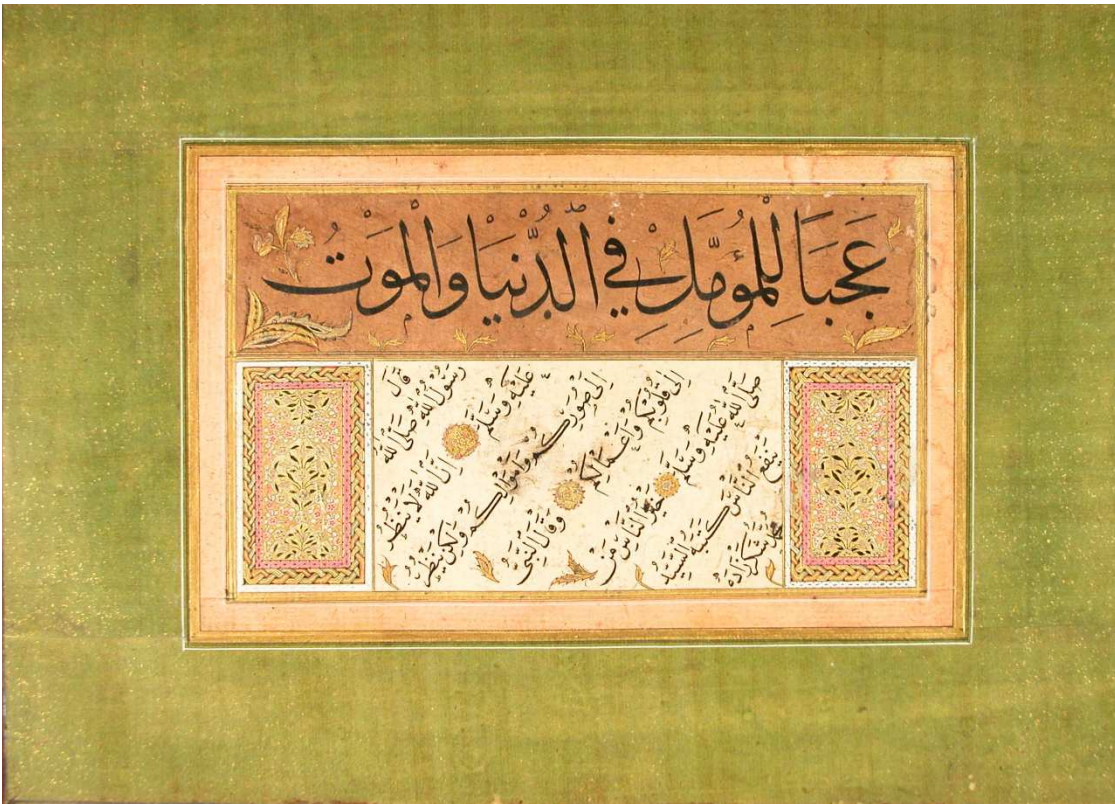 عَجَبًا لِلْمُؤَمِّلِ فِي الدُّنْيَا وَالْمَوْتُ
قَالَ
رَسُولُ اللّٰهِ صَلَّى اللّٰهُ
عَلَيْهِ وَسَلَّمَ اِنَّ اللّٰهَ لَا يَنْظُرُ
اِلٰى صُوَرِكُمْ وَاَمْوَالِكُمْ وَلٰكِنْ يَنْظُرُ
اِلٰى قُلُوبِكُمْ وَاَعْمَالِكُمْ وَقَالَ النَّبِيُّ
صَلَّى اللّٰهُ عَلَيْهِ وَسَلَّمَ خَيْرُ النَّاسِ مَنْ
يَنْفَعُ النَّاسَ كَتَبَهُ السَّيِّدُ
مُحَمَّد شَكَرْزَادَه